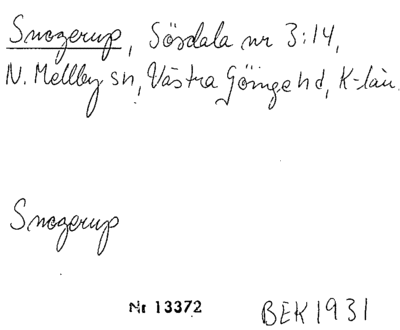 Snogerup, Sösdala nr 3:14,
N. Mellby sn, Västra Göinge hd, K-län.
Snogerup
Nr 13372 BEK 1931